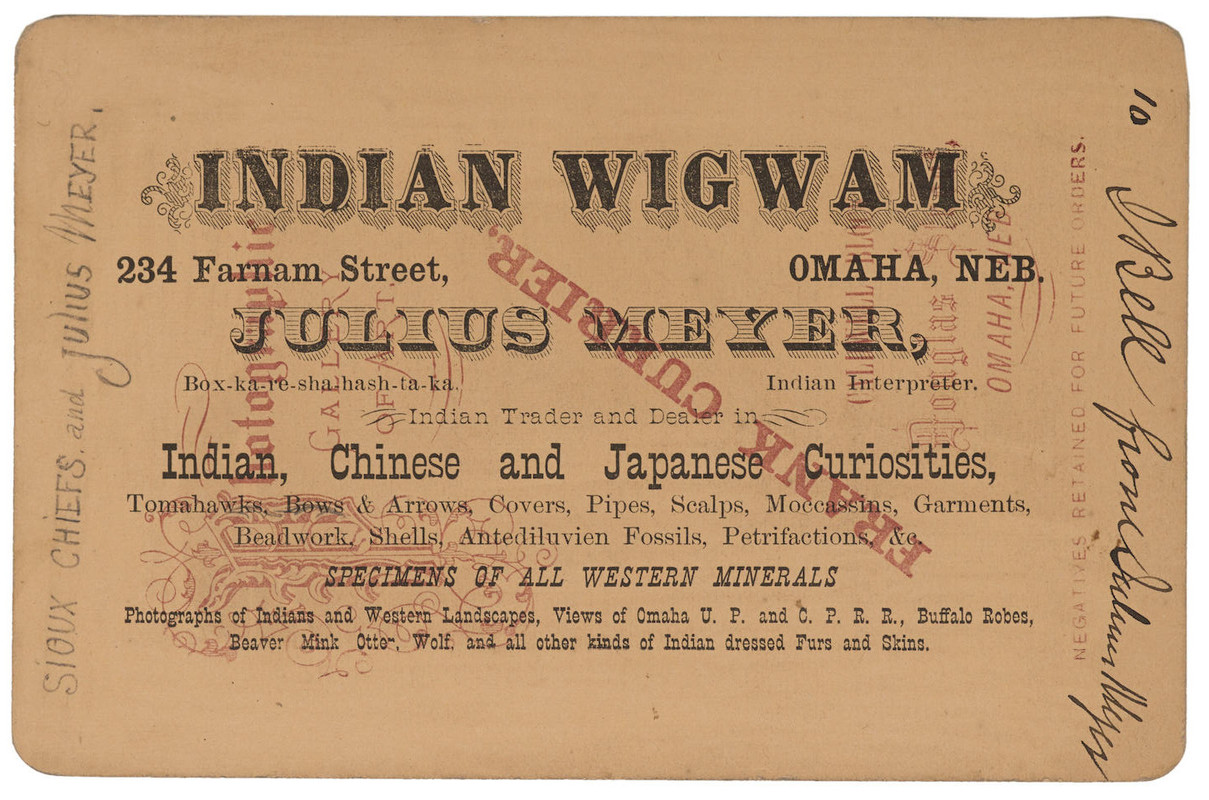 INDIAN WIGWAM
234 Farnam Street, OMAHA, NEB.
JULIUS MEYER,
Box-ka-re-sha-hash-ta-ka. Indian Interpreter.
Indian Trader and Dealer in
Indian, Chinese and Japanese Curiosities,
Tomahawks, Bows & Arrows, Covers, Pipes, Scalps, Moccassins, Garments,
Beadwork, Shells, Antediluvien Fossils, Petrifactions, &c.
SPECIMENS OF ALL WESTERN MINERALS
Photographs of Indians and Western Landscapes, Views of Omaha U. P. and C. P. R. R., Buffalo Robes,
Beaver Mink Otter, Wolf, and all other kinds of Indian dressed Furs and Skins.
SIOUX CHIEFS. and Julius MEYER.
FRANK CURRIER,
Photographic
GALLERY
OF ART.
Douglas
OMAHA, NEB.
NEGATIVES RETAINED FOR FUTURE ORDERS.
Bell from Julius Meyer